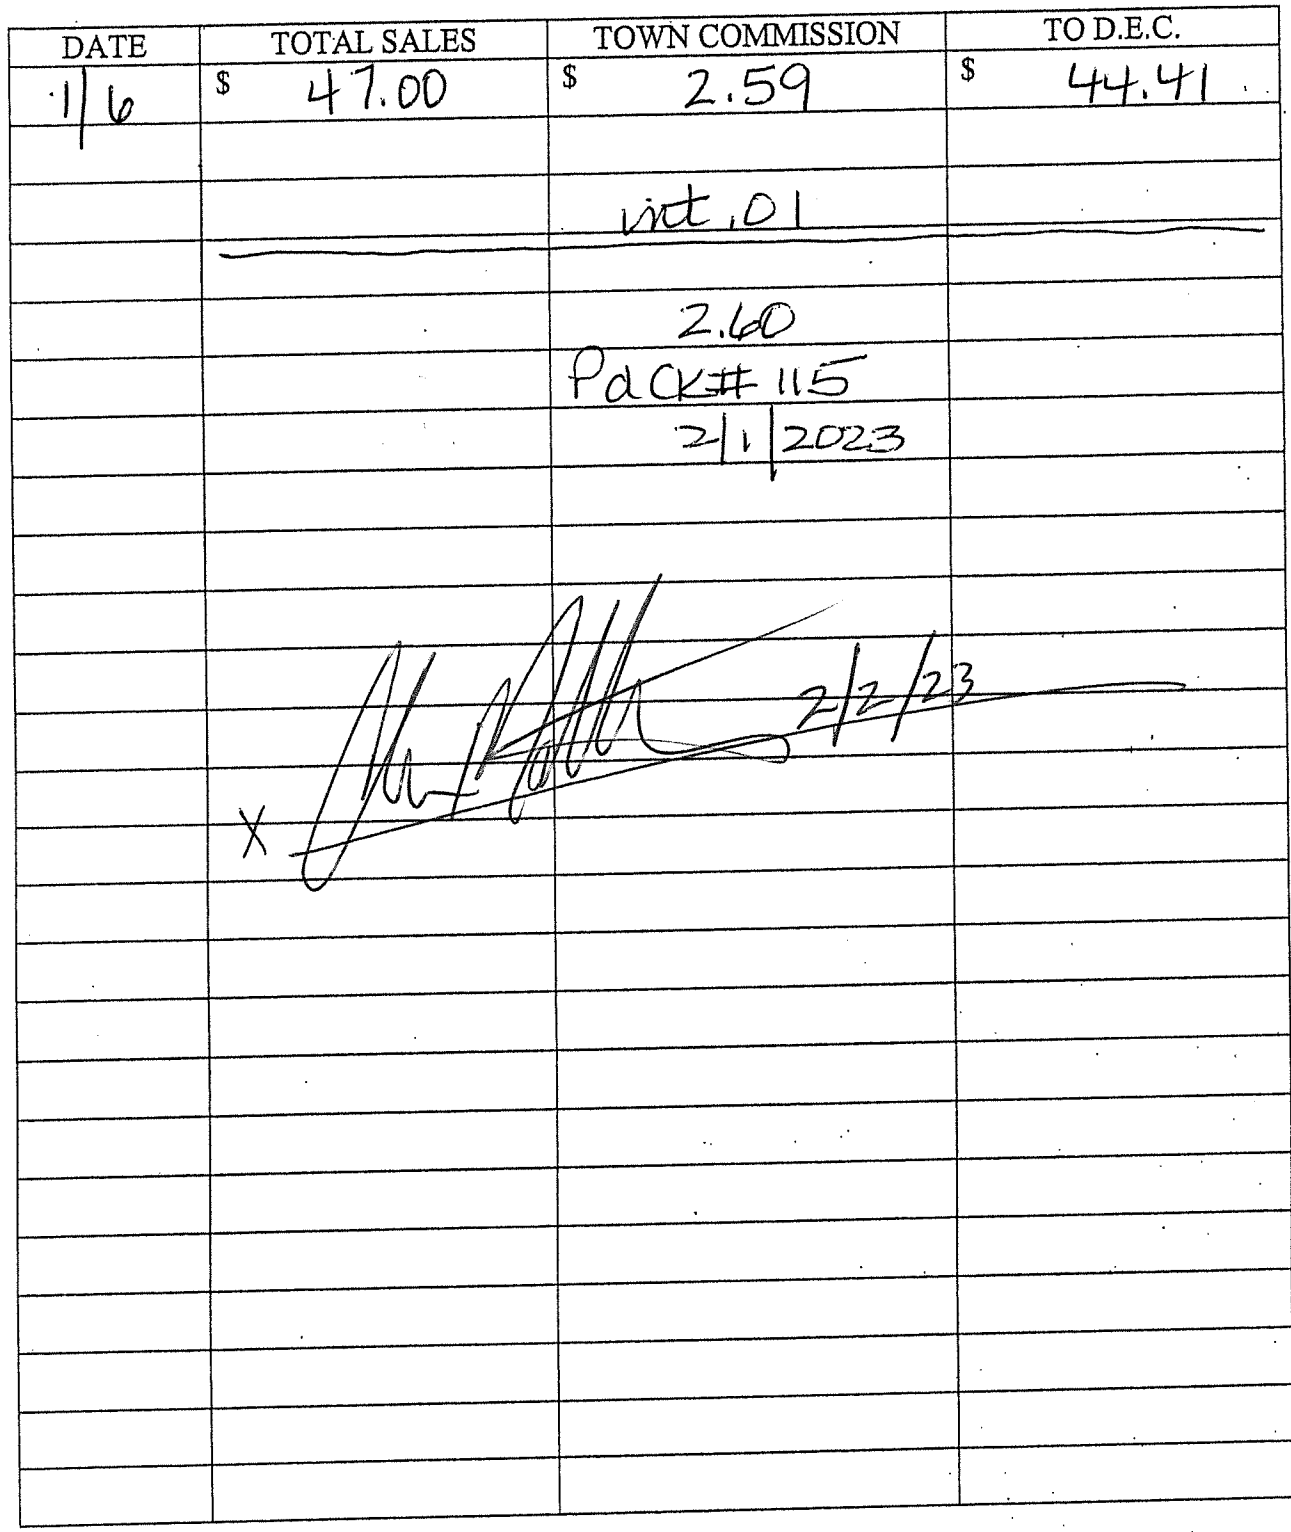 DATE TOTAL SALES TOWN COMMISSION TO D.E.C.
1/6 $ 47.00 $ 2.59 $ 44.41
int .01
2.60
Pd CK# 115
2/1/2023
2/2/23
X